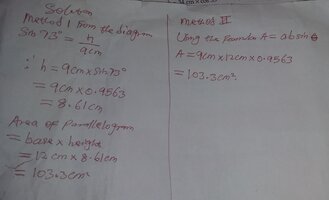 Solution
Method 1 from the diagram
Sin 73° = h/9cm
∴ h = 9cm x sin 73°
= 9cm x 0.9563
= 8.61cm
Area of Parallelogram
= base x height
= 12cm x 8.61cm
= 103.3cm²
Method II
Using the formula A = absinθ
A = 9cm x 12cm x 0.9563
= 103.3cm².